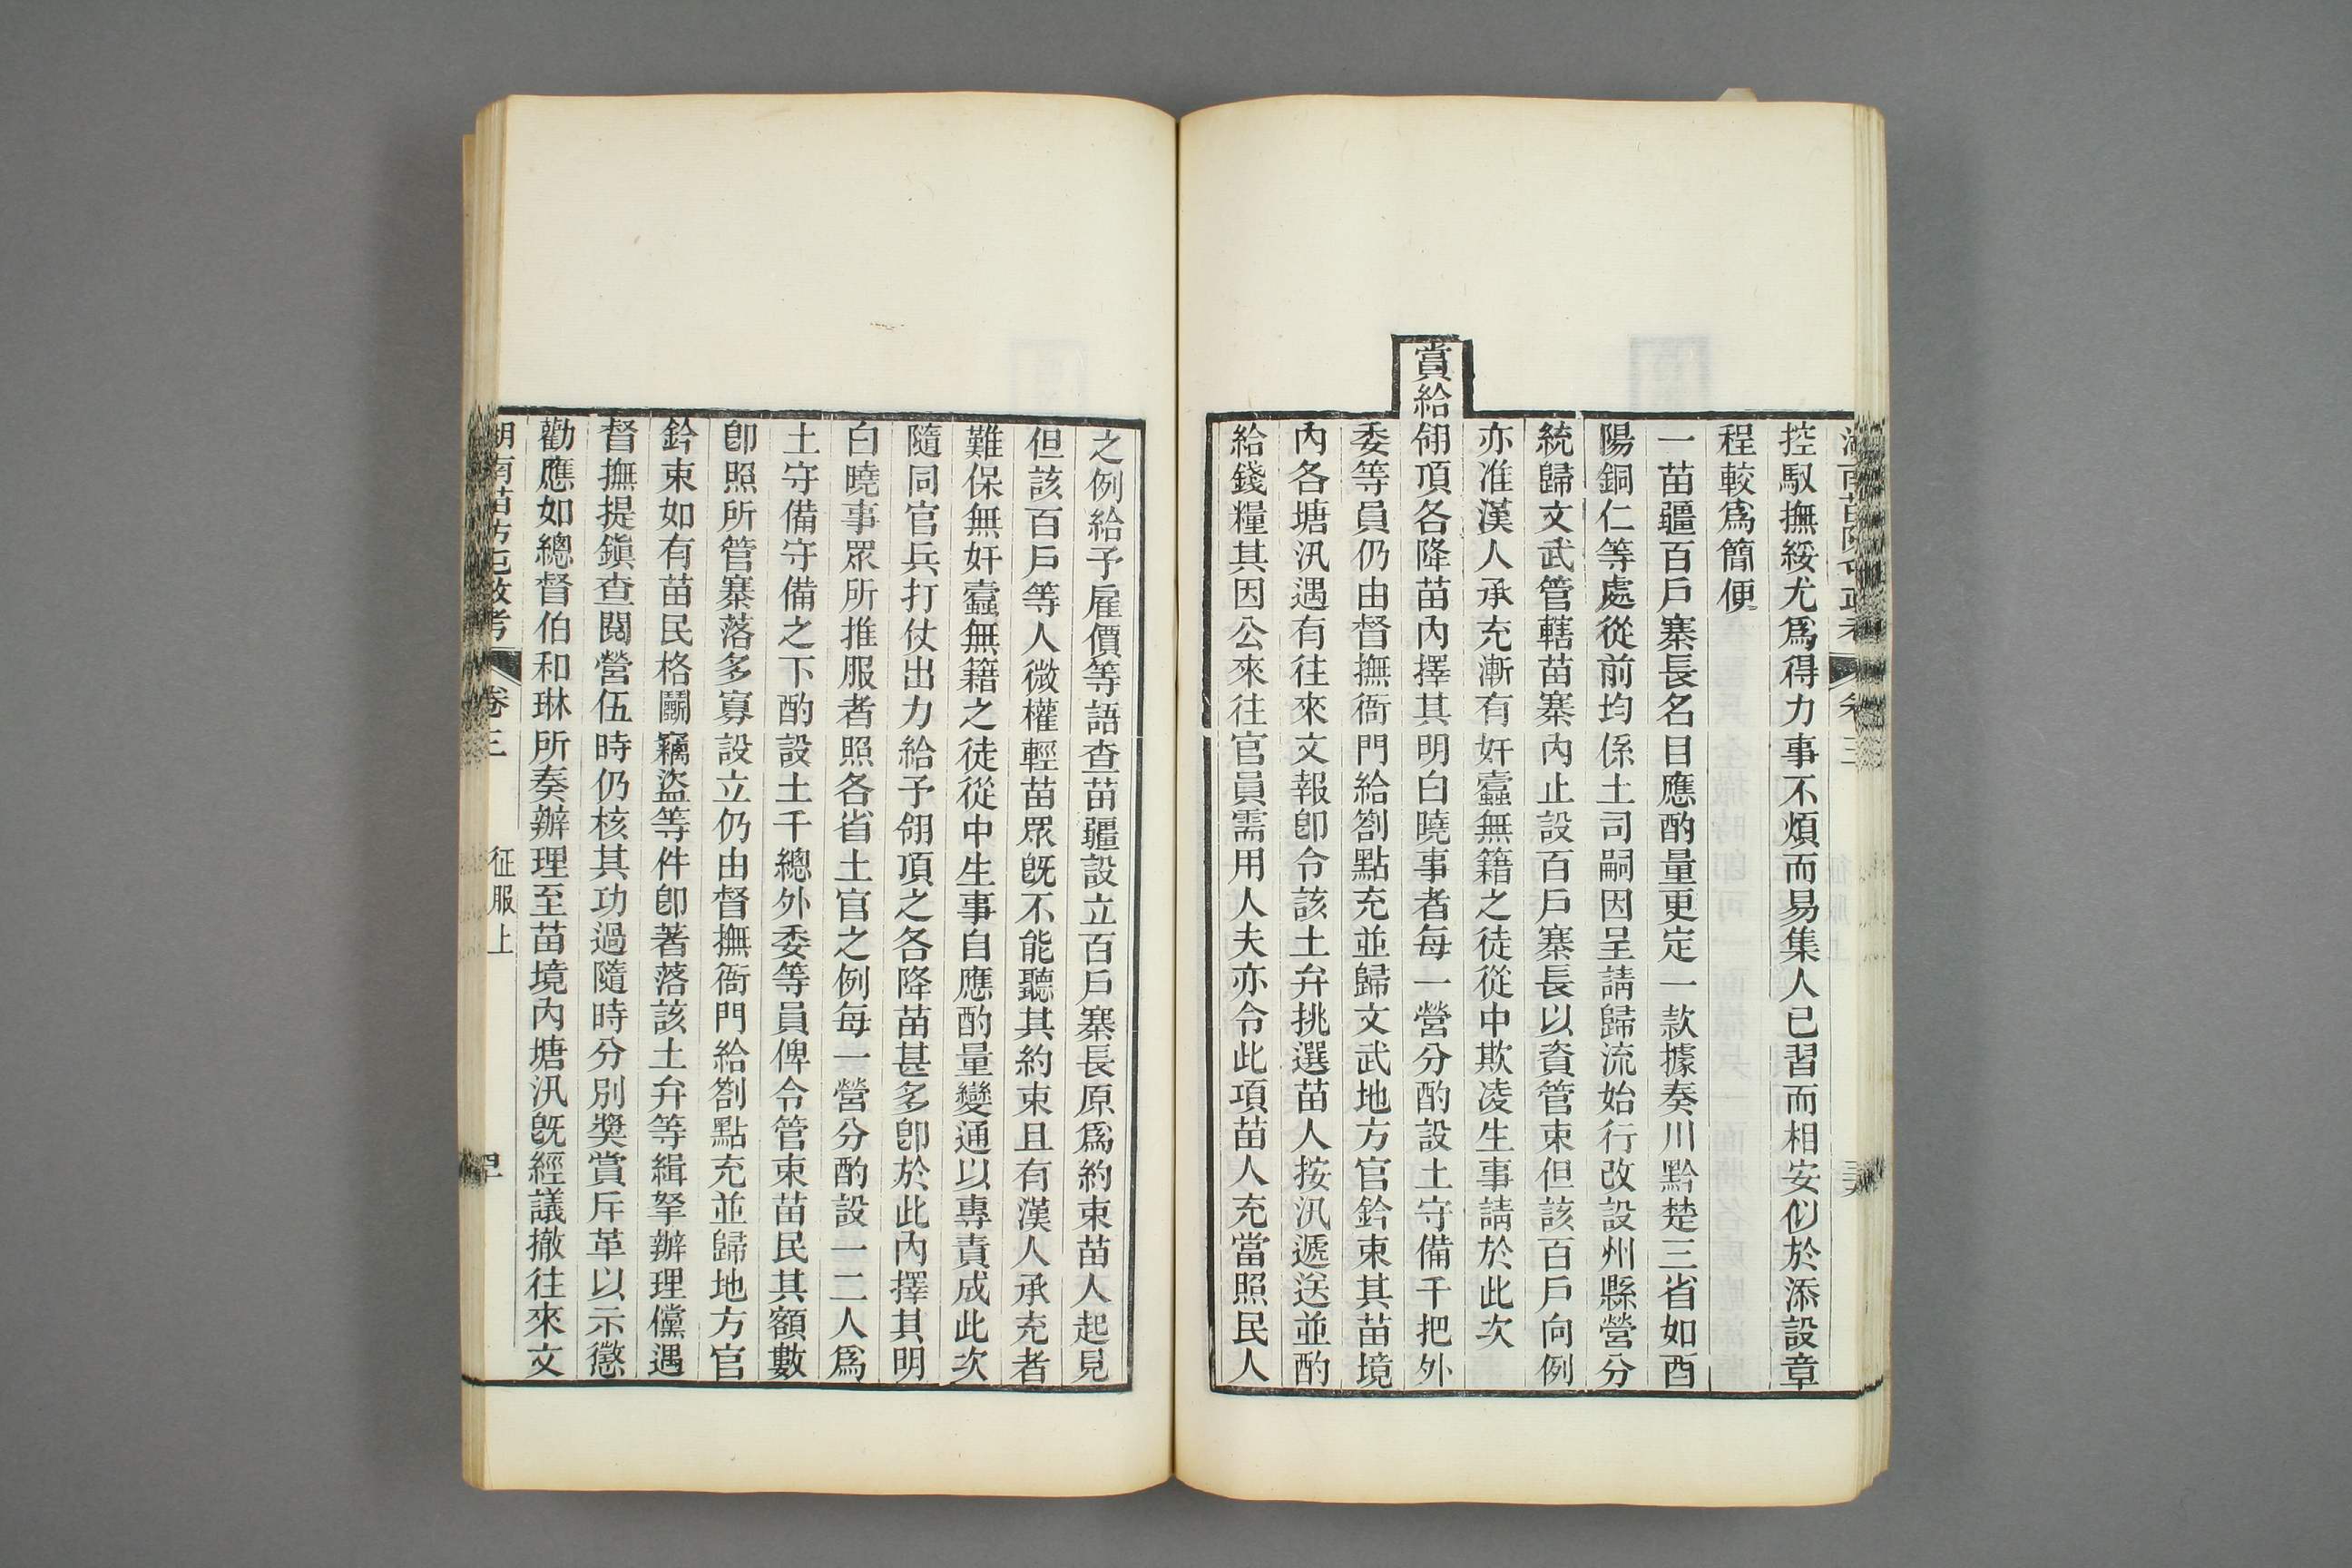 控馭撫綏尤爲得力事不煩而易集人已習而相安似於添設章
程較爲簡便
一苗疆百戶寨長名目應酌量更定一款據奏川黔楚三省如酉
陽銅仁等處從前均係土司嗣因呈請歸流始行改設州縣營分
統歸文武管轄苗寨內止設百戶寨長以資管束但該百戶向例
亦准漢人承充漸有奸蠹無籍之徒從中欺凌生事請於此次
賞給翎頂各降苗內擇其明白曉事者每一營分酌設土守備千把外
委等員仍由督撫衙門給劄點充並歸文武地方官鈐束其苗境
內各塘汛遇有往來文報卽令該土弁挑選苗人按汛遞送並酌
給錢糧其因公來往官員需用人夫亦令此項苗人充當照民人
之例給予雇價等語查苗疆設立百戶寨長原爲約束苗人起見
但該百戶等人微權輕苗眾旣不能聽其約束且有漢人承充者
難保無奸蠹無籍之徒從中生事自應酌量變通以專責成此次
隨同官兵打仗出力給予翎頂之各降苗甚多卽於此內擇其明
白曉事眾所推服者照各省土官之例每一營分酌設一二人爲
土守備守備之下酌設土千總外委等員俾令管束苗民其額數
卽照所管寨落多寡設立仍由督撫衙門給劄點充並歸地方官
鈐束如有苗民格鬭竊盜等件卽著落該土弁等緝拏辦理儻遇
督撫提鎭查閱營伍時仍核其功過隨時分別獎賞斥革以示懲
勸應如總督伯和琳所奏辦理至苗境內塘汛旣經議撤往來文
湖南苗防屯政考 卷三 征服上